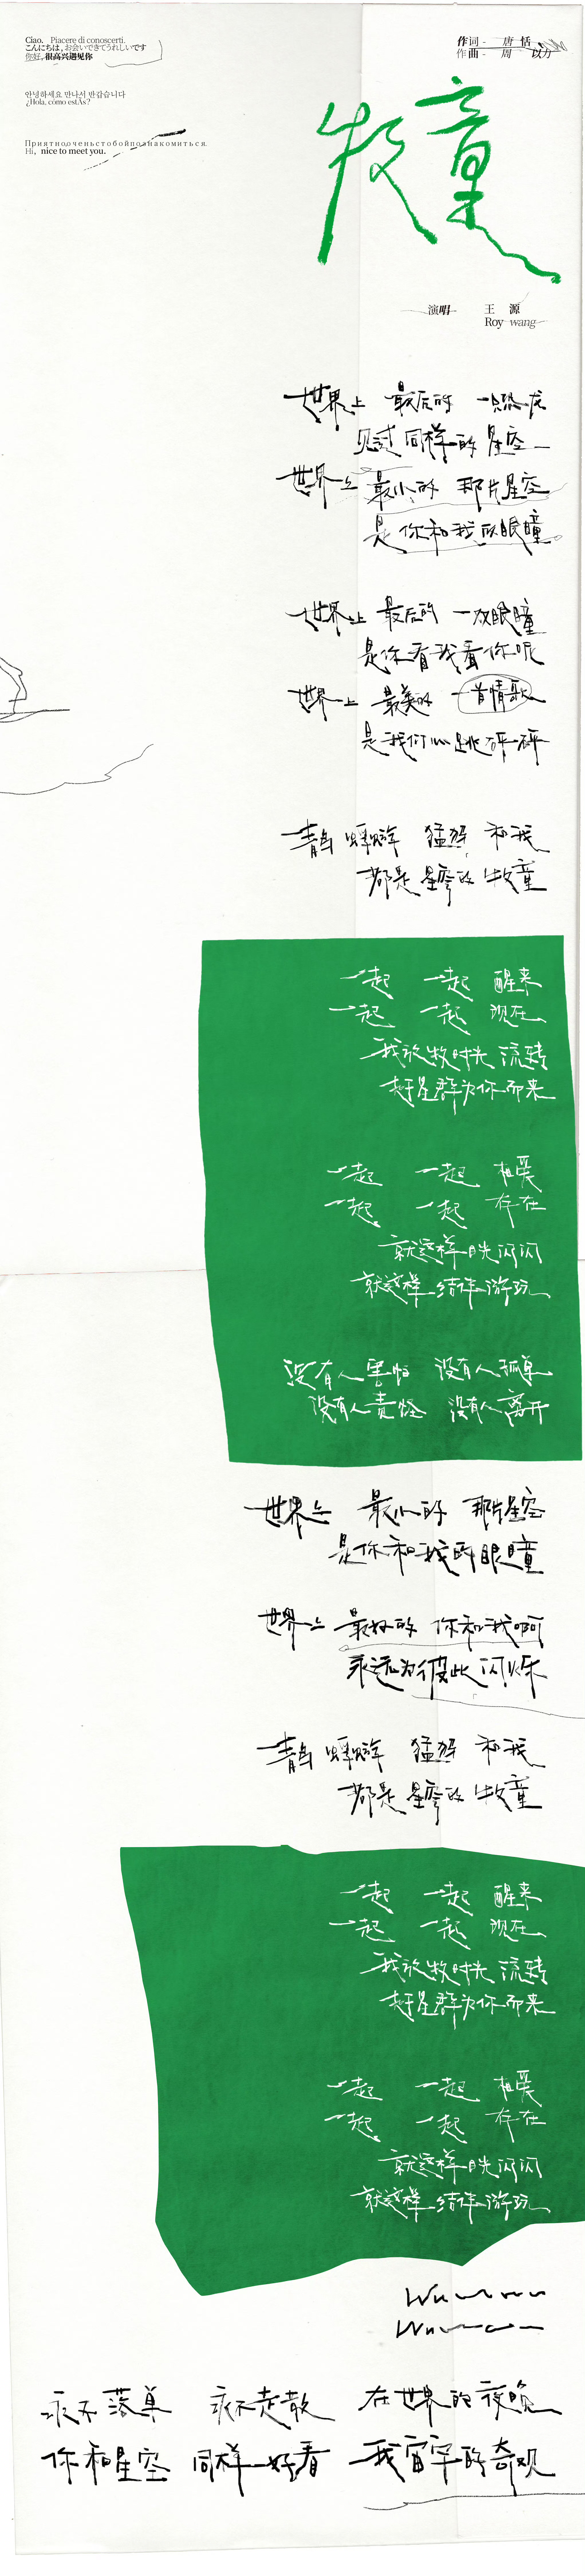 Ciao, Piacere di conoscerti.
こんにちは, お会いできてうれしいです
你好, 很高兴遇见你
안녕하세요 만나서 반갑습니다
¿Hola, cómo estÁs?
Приятно очень с тобой познакомиться.
Hi, nice to meet you.
作词 - 唐恬
作曲 - 周以力
牧童
演唱 王源
Roy wang
世界上 最后的 一只恐龙
见过同样的 星空
世界上 最小的 那片星空
是你和我的眼瞳
世界上 最后的 一双眼瞳
是你看我看你呢
世界上 最美的 一首情歌
是我们心跳砰砰
青鸟 蝌蚪 猛犸 和我
都是星穹的 牧童
一起 一起 醒来
一起 一起 现在
我放牧时光 流转
赶星群为你而来
一起 一起 相爱
一起 一起 存在
就这样 目光闪闪
就这样 结伴游玩
没有人害怕 没有人孤单
没有人责怪 没有人离开
世界上 最小的 那片星空
是你和我的眼瞳
世界上 最好的 你和我啊
永远为彼此闪烁
青鸟 猛犸 和我
都是星穹的 牧童
一起 一起 醒来
一起 一起 现在
我放牧时光 流转
赶星群为你而来
一起 一起 相爱
一起 一起 存在
就这样 目光闪闪
就这样 结伴游玩
永不落单 永不走散 在世界的夜晚
你和星空 同样好看 我宇宙的奇观